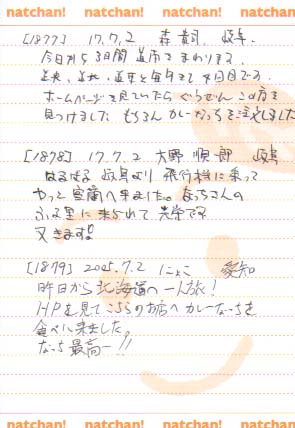 natchan! natchan! natchan! natchan!
[1877] 17.7.2 森 貴司 岐阜
今日から3日間 道南をまわります。
道央、道北、道東と毎年きて4回目です。
ホームページを見ていたら ぐうぜん この店を
見つけました もちろん カレーなっちを注文しました
[1878] 17.7.2 大野 順一郎 岐阜
はるばる 岐阜より 飛行機に乗って
やっと 室蘭へ来ました。なっちさんの
ふる里に来られて 幸せです
又きます。
[1879] 2005.7.2 にょこ 愛知
昨日から北海道の一人旅!
HPを見てこちらのお店へカレーなっちを
食べに来ました。
なっち最高ー!!
natchan! natchan! natchan! natchan!